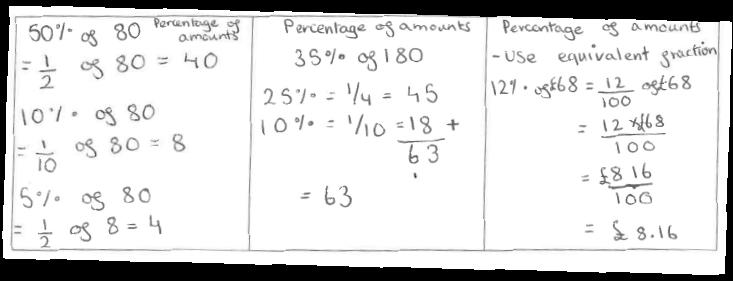 50% of 80 Percentage of amounts
= 1/2 of 80 = 40
10% of 80
= 1/10 of 80 = 8
5% of 80
= 1/2 of 8 = 4
Percentage of amounts
35% of 180
25% = 1/4 = 45
10% = 1/10 = 18 +
63
= 63
Percentage of amounts
- Use equivalent fraction
12% of £68 = 12/100 of £68
= 12 × £68 / 100
= £816 / 100
= £8.16